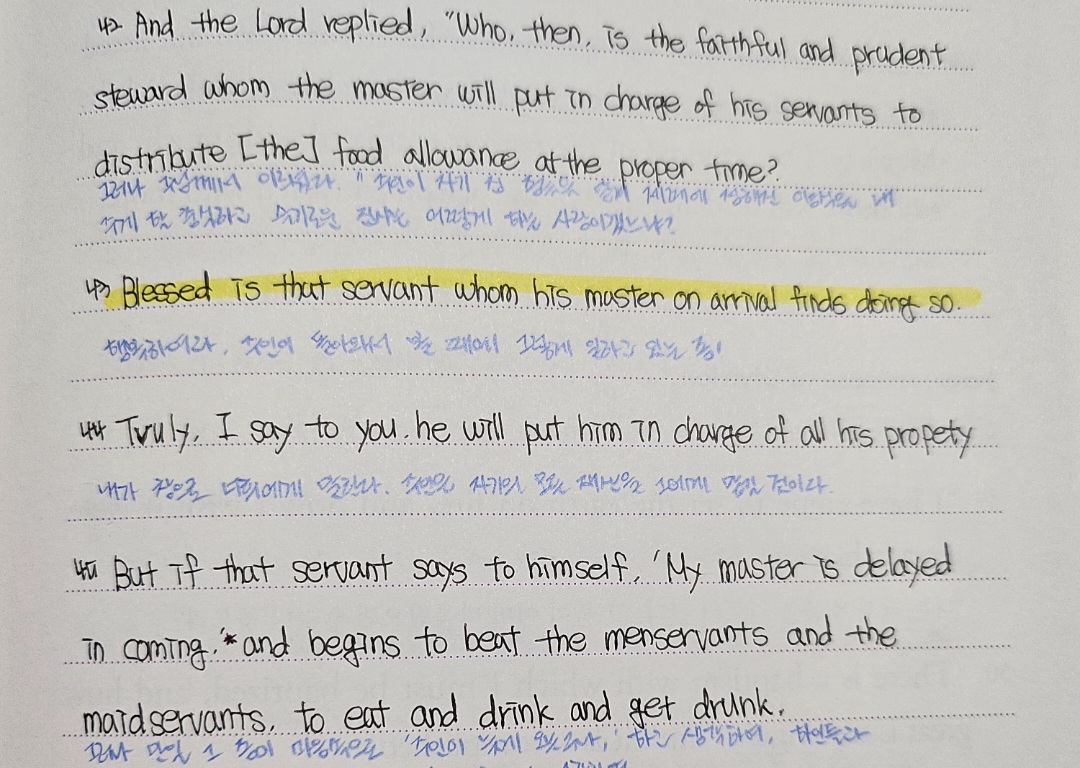 42 And the Lord replied, "Who, then, is the faithful and prudent
steward whom the master will put in charge of his servants to
distribute [the] food allowance at the proper time?
그러자 주님께서 이르셨다. " 주인이 자기 집 제때에 정해진 양식을 내
주게 할 충실하고 슬기로운 집사는 어떻게 하는 사람이겠느냐?
43 Blessed is that servant whom his master on arrival finds doing so.
행복하여라, 주인이 돌아와서 볼 때에 그렇게 일하고 있는 종!
44 Truly, I say to you, he will put him in charge of all his propety
내가 참으로 너희에게 말한다. 주인은 자기의 모든 재산을 그에게 맡길 것이다.
45 But if that servant says to himself, 'My master is delayed
in coming,'* and begins to beat the menservants and the
maidservants, to eat and drink and get drunk,
그러나 만일 그 종이 마음속으로 '주인이 늦게 오는구나,' 하고 생각하여, 하인들과